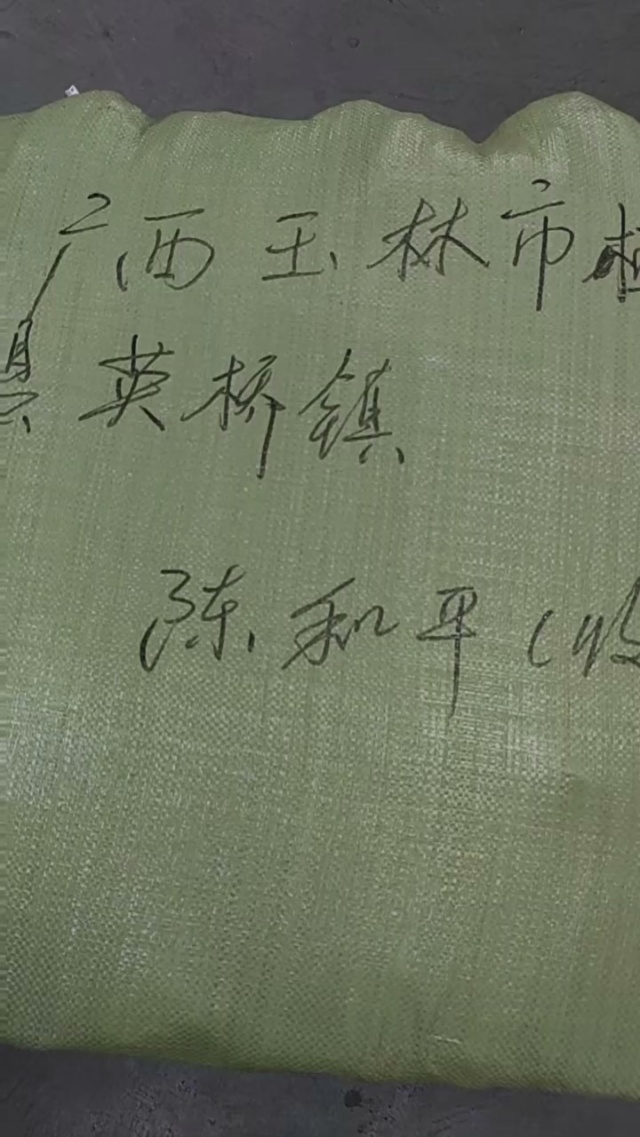 广西玉林市
县英桥镇
陈和平（收